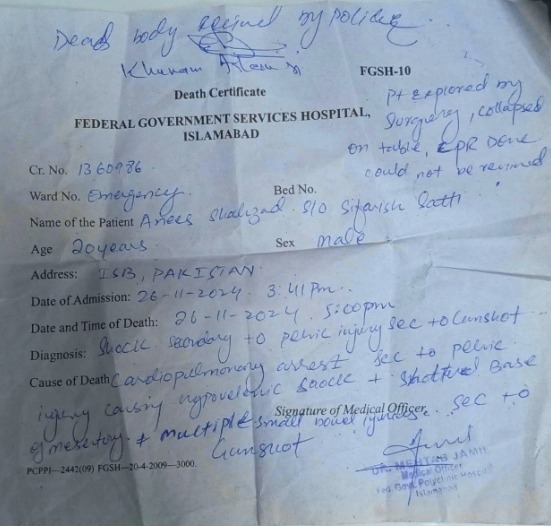 Dead body received by police
Khuram
FGSH-10
Death Certificate
Pt Explored by
FEDERAL GOVERNMENT SERVICES HOSPITAL,
Surgery, collapsed
ISLAMABAD
on table, CPR Done
could not be revived
Cr. No. 1360986
Ward No. Emergency
Bed No.
Name of the Patient Anees Shahzad S/O Sifarish Satti
Age 20 years
Sex male
Address: ISB, PAKISTAN
Date of Admission: 26-11-2024. 3:41 Pm
Date and Time of Death: 26-11-2024. 5:00pm
Diagnosis: Shock secondary to pelvic injury sec to Gunshot
Cause of Death Cardiopulmonary arrest sec to pelvic
injury causing hypovolemic shock + Base
Signature of Medical Officer
of mesentery + multiple small bowel injuries. sec to
Gunshot
PCPPI—2442(09) FGSH—20-4-2009—3000.
DR. JAMIL
Medical Officer
Fed. Govt. Polyclinic Hospital
Islamabad